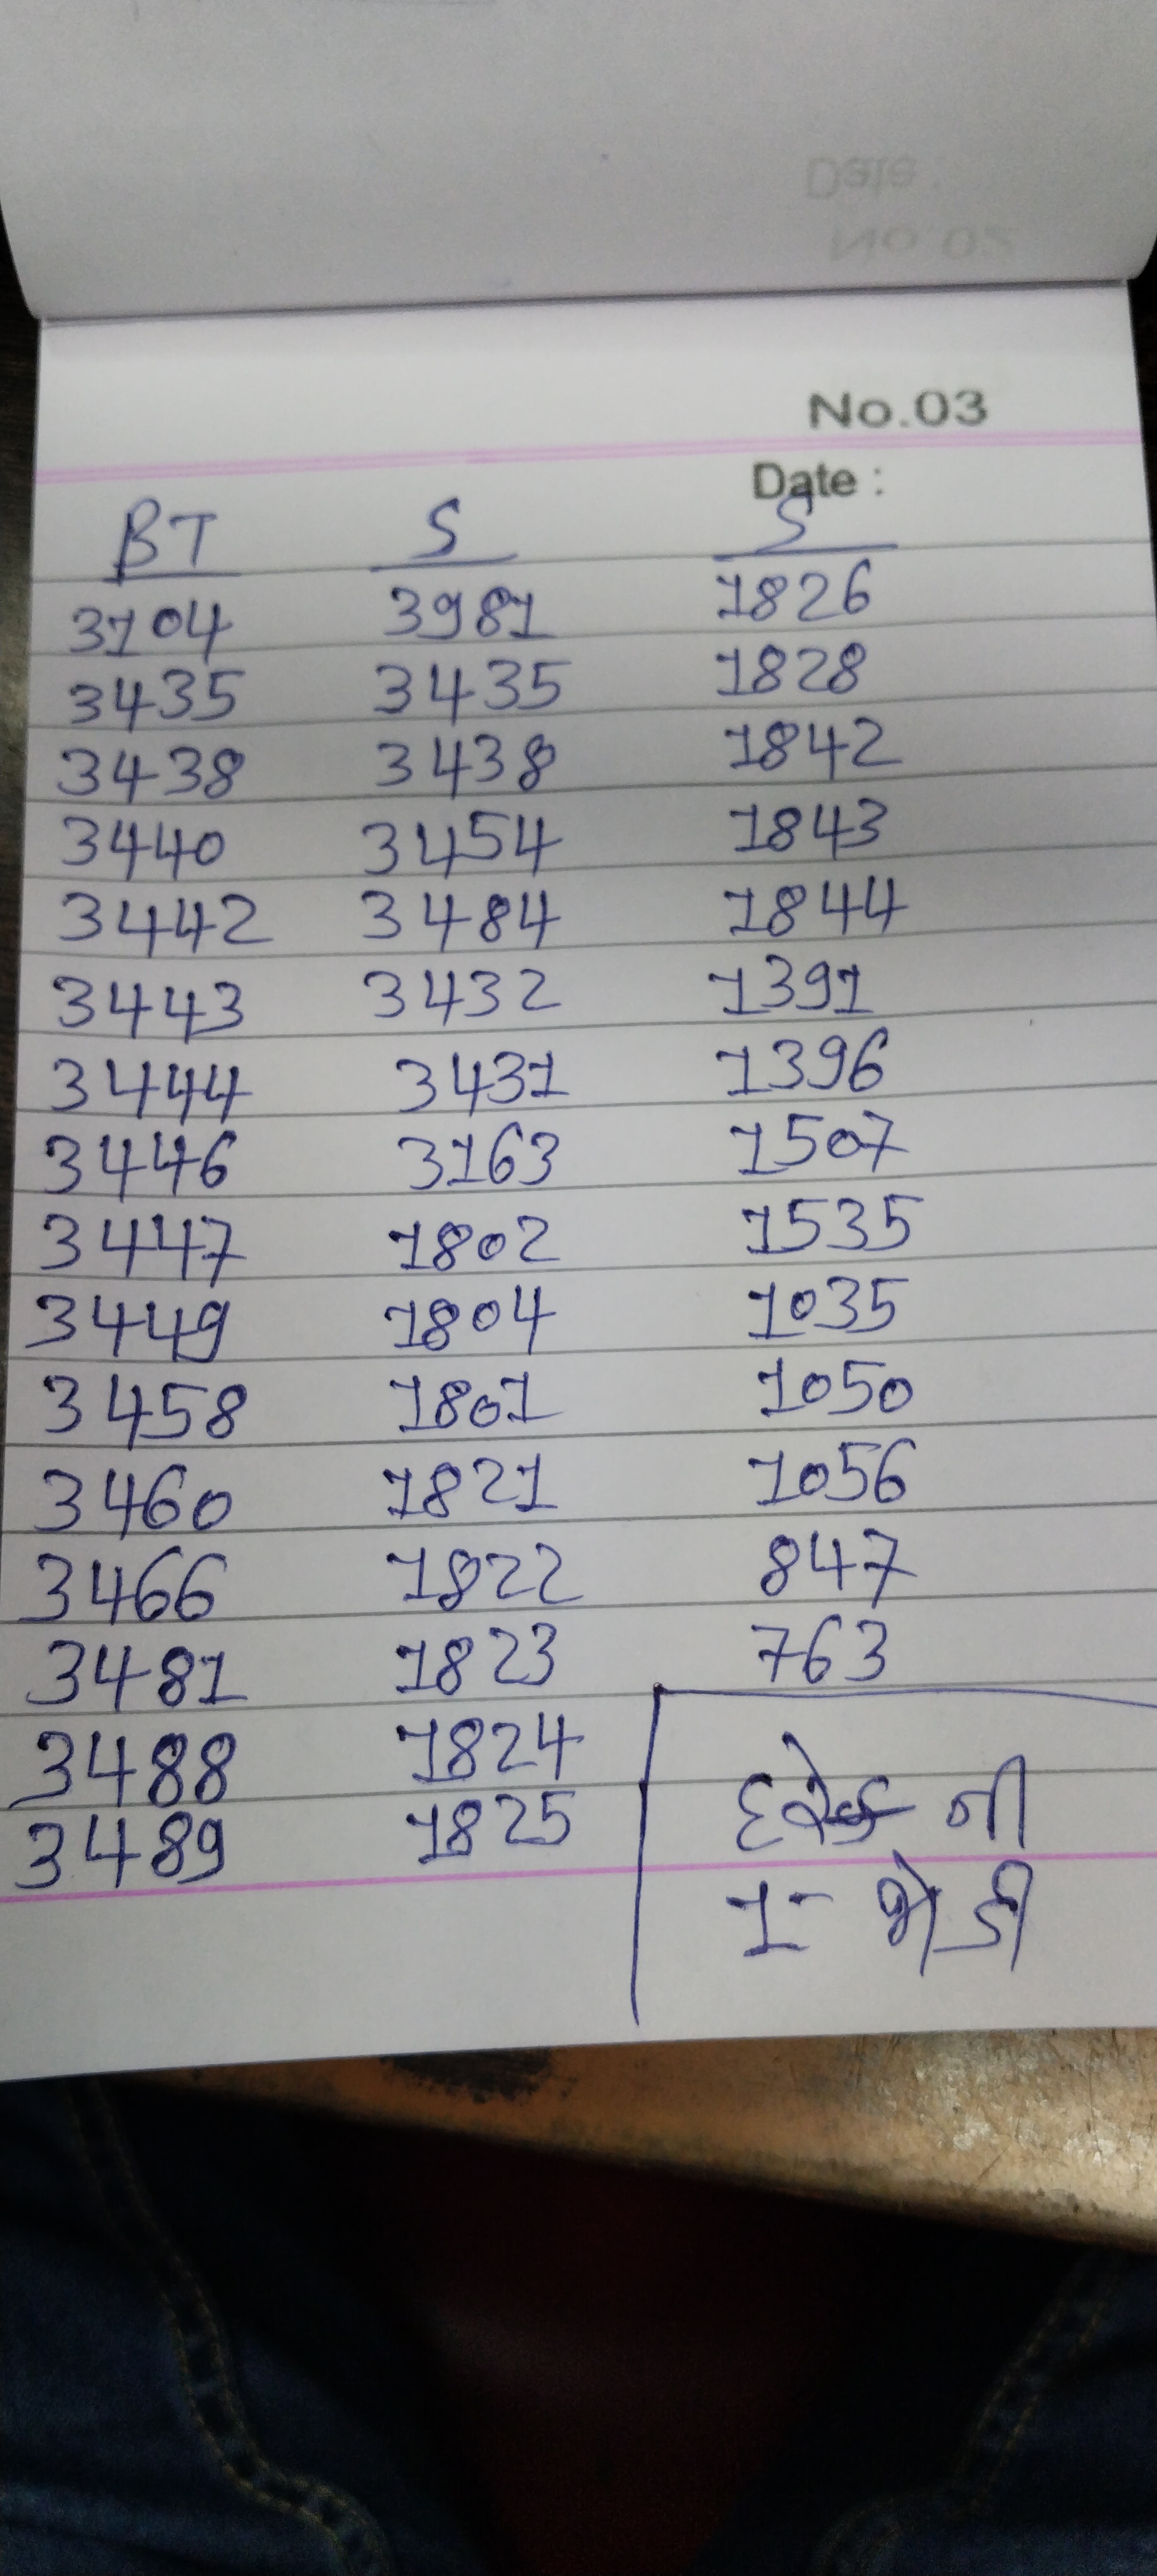 No.03
Date :
BT S S
3104 3981 1826
3435 3435 1828
3438 3438 1842
3440 3454 1843
3442 3484 1844
3443 3432 1391
3444 3431 1396
3446 3163 1507
3447 1802 1535
3449 1804 1035
3458 1801 1050
3460 1821 1056
3466 1822 847
3481 1823 763
3488 1824
3489 1825
દરેક ની
1- જોડી
Date :
No.02